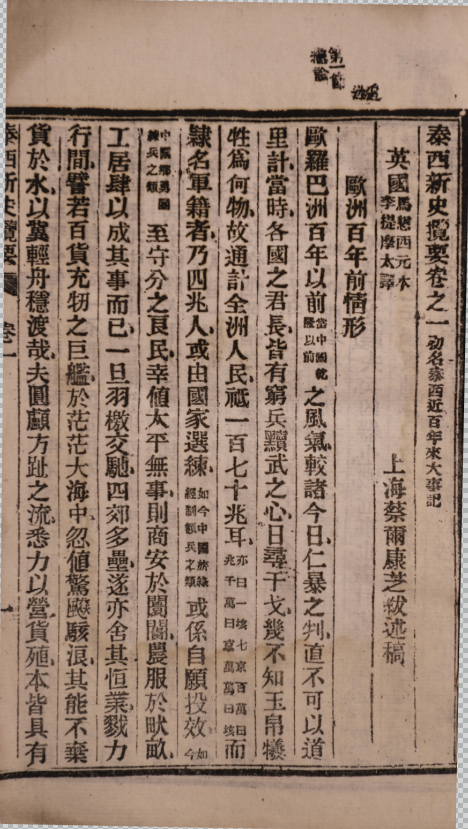 第一節
總論
泰西新史攬要卷之一初名泰西近百年來大事記
英國馬懇西元本
李提摩太譯
上海蔡爾康芝紱述稿
歐洲百年前情形
歐羅巴洲百年以前當中國乾隆以前之風氣較諸今日仁暴之判直不可以道
里計當時各國之君長皆有窮兵黷武之心日尋干戈幾不知玉帛犧
牲爲何物故通計全洲人民祗一百七十兆耳亦曰一垓七京百萬曰兆千萬曰京萬萬曰垓而
隸名軍籍者乃四兆人或由國家選練如今中國旂綠經制額兵之類或係自願投效如今
中國鄉勇團練兵之類至守分之良民幸值太平無事則商安於闤闠農服於畎畝
工居肆以成其事而已一旦羽檄交馳四郊多壘遂亦舍其恒業戮力
行間譬若百貨充牣之巨艦於茫茫大海中忽值驚颷駭浪其能不棄
貨於水以冀輕舟穩渡哉夫圓顱方趾之流悉力以營貨殖本皆具有
泰西新史攬要
卷一